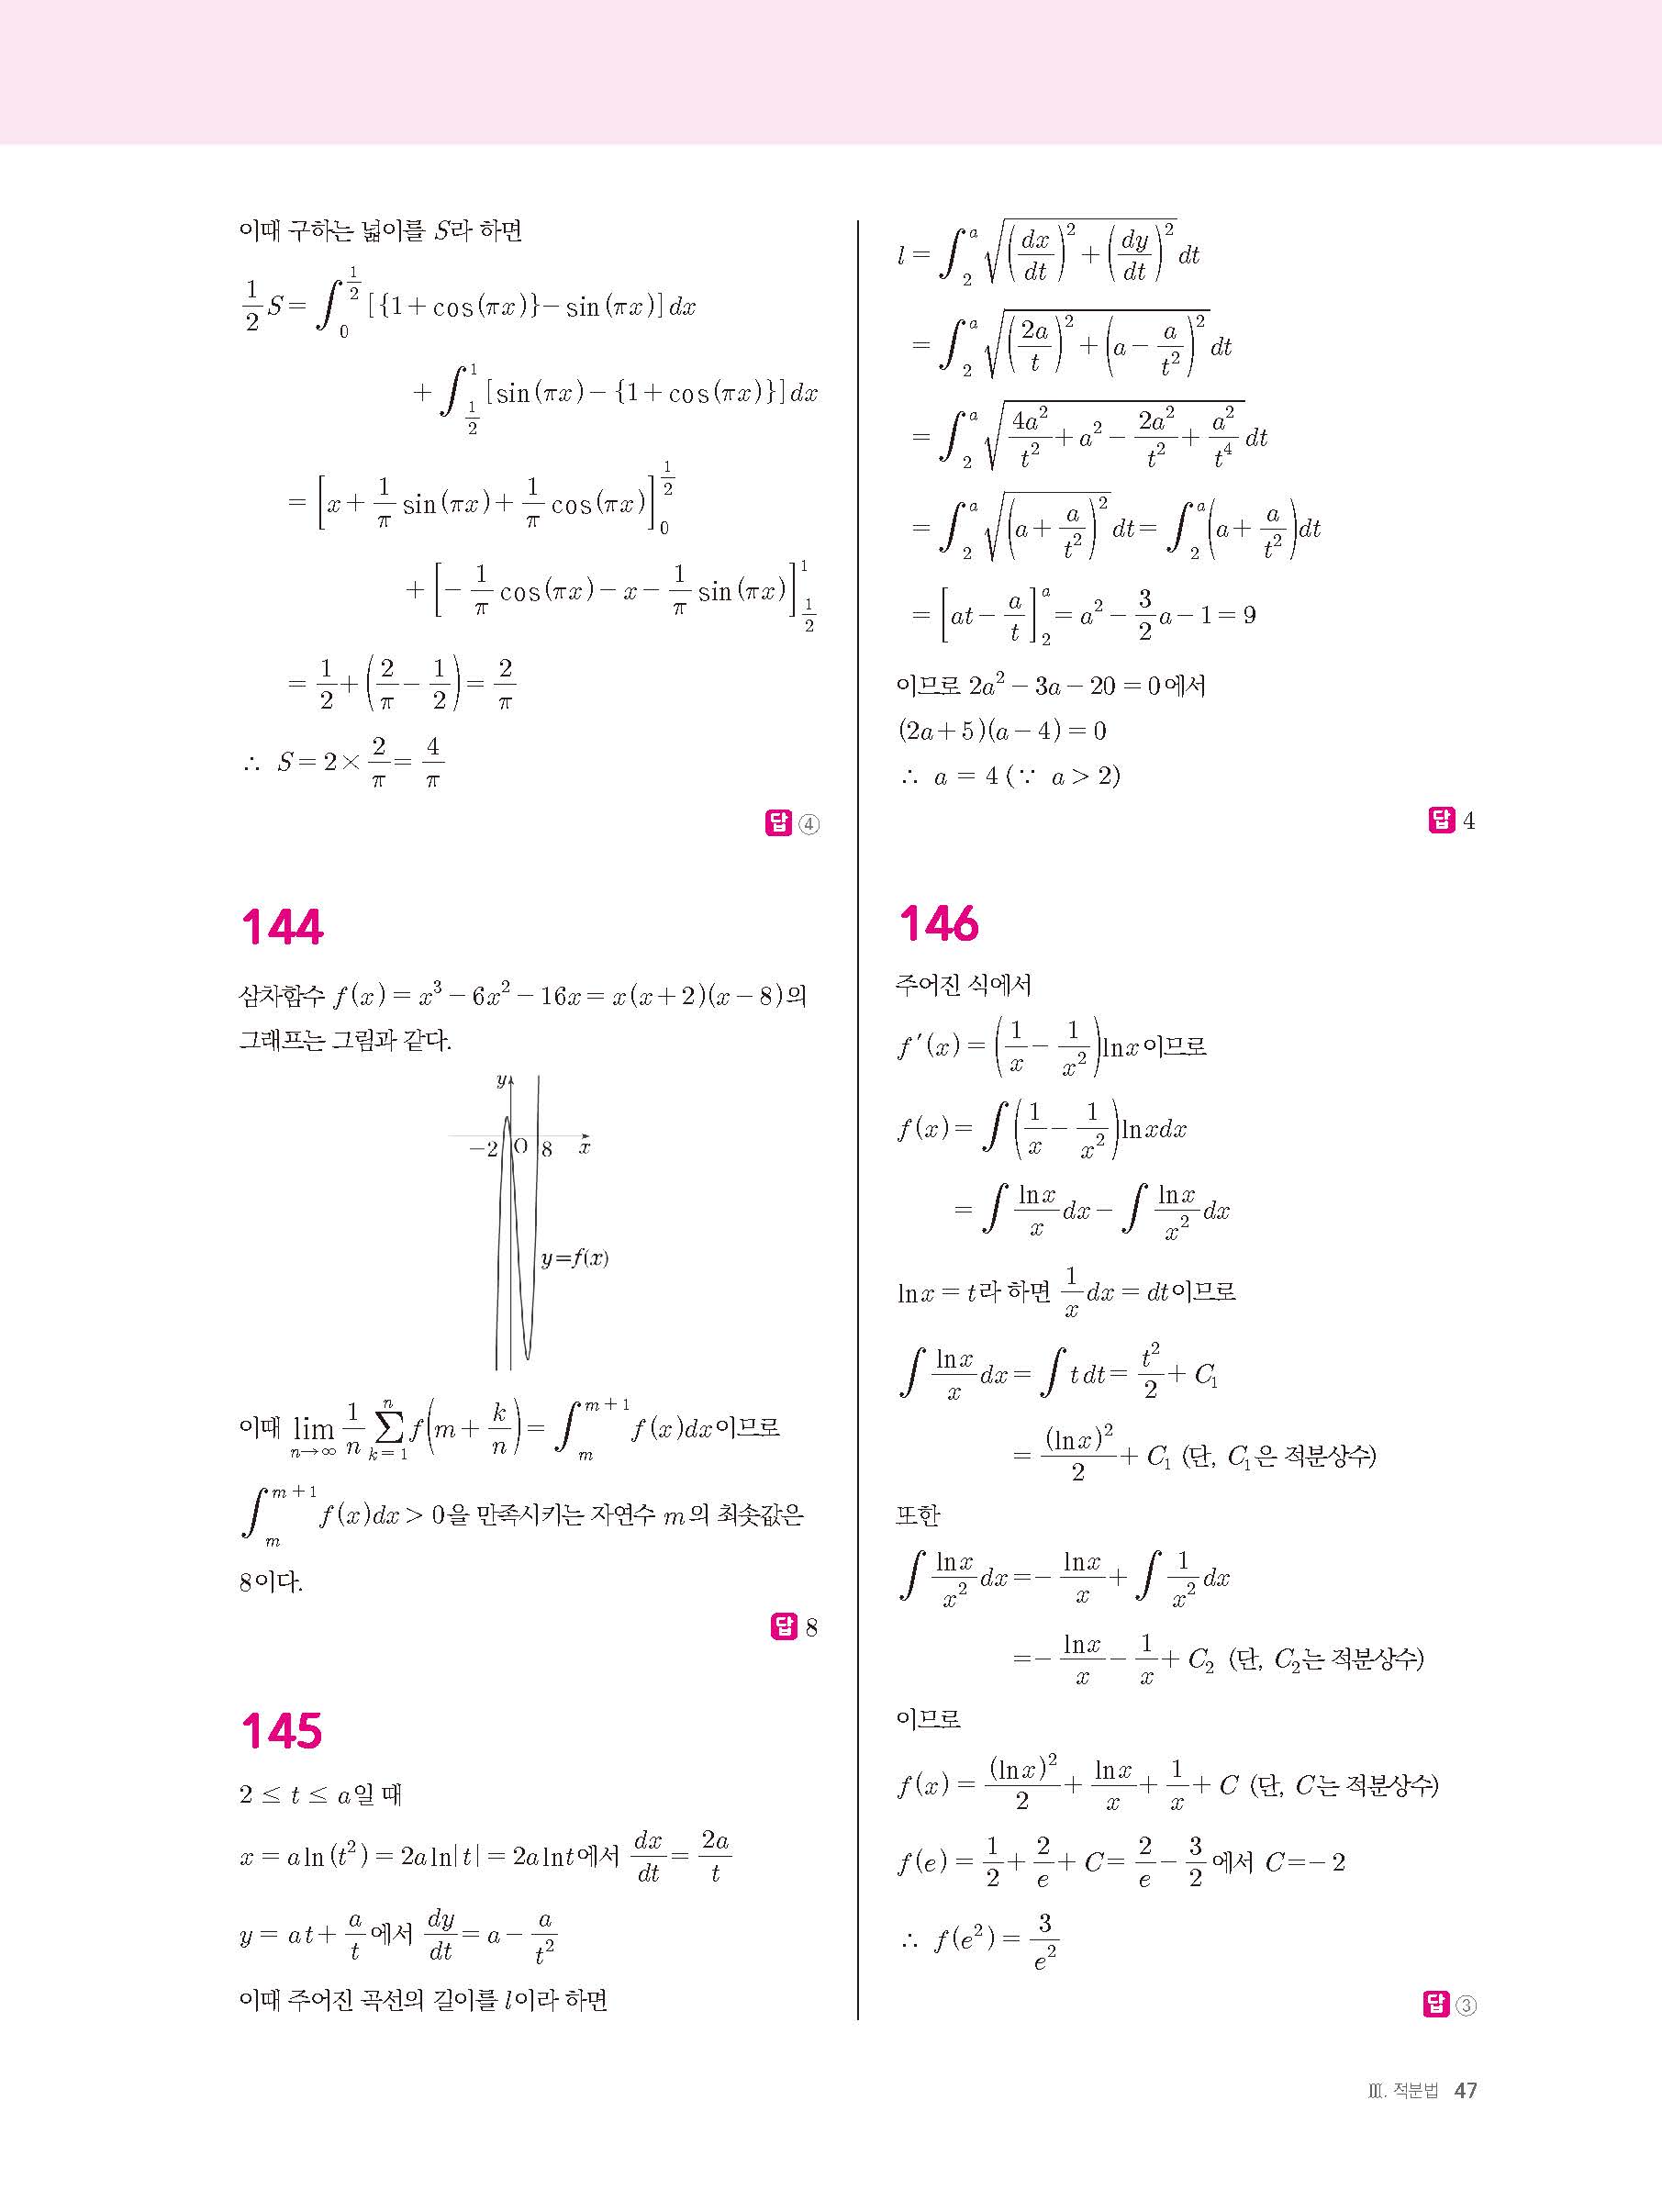 이때 구하는 넓이를 S라 하면
$\frac{1}{2}S=\int_{0}^{\frac{1}{2}}[\{1+\cos(\pi x)\}-\sin(\pi x)]dx$
$+\int_{\frac{1}{2}}^{1}[\sin(\pi x)-\{1+\cos(\pi x)\}]dx$
$=\left[x+\frac{1}{\pi}\sin(\pi x)+\frac{1}{\pi}\cos(\pi x)\right]_{0}^{\frac{1}{2}}$
$+\left[-\frac{1}{\pi}\cos(\pi x)-x-\frac{1}{\pi}\sin(\pi x)\right]_{\frac{1}{2}}^{1}$
$=\frac{1}{2}+\left(\frac{2}{\pi}-\frac{1}{2}\right)=\frac{2}{\pi}$
$\therefore S=2\times\frac{2}{\pi}=\frac{4}{\pi}$
답 ④
144
삼차함수 $f(x)=x^3-6x^2-16x=x(x+2)(x-8)$의
그래프는 그림과 같다.
y
−2 O 8 x
y=f(x)
이때 $\lim_{n\to\infty}\frac{1}{n}\sum_{k=1}^{n}f\left(m+\frac{k}{n}\right)=\int_{m}^{m+1}f(x)dx$이므로
$\int_{m}^{m+1}f(x)dx>0$을 만족시키는 자연수 m의 최솟값은
8이다.
답 8
145
$2\le t\le a$일 때
$x=a\ln(t^2)=2a\ln|t|=2a\ln t$에서 $\frac{dx}{dt}=\frac{2a}{t}$
$y=at+\frac{a}{t}$에서 $\frac{dy}{dt}=a-\frac{a}{t^2}$
이때 주어진 곡선의 길이를 l이라 하면
$l=\int_{2}^{a}\sqrt{\left(\frac{dx}{dt}\right)^2+\left(\frac{dy}{dt}\right)^2}dt$
$=\int_{2}^{a}\sqrt{\left(\frac{2a}{t}\right)^2+\left(a-\frac{a}{t^2}\right)^2}dt$
$=\int_{2}^{a}\sqrt{\frac{4a^2}{t^2}+a^2-\frac{2a^2}{t^2}+\frac{a^2}{t^4}}dt$
$=\int_{2}^{a}\sqrt{\left(a+\frac{a}{t^2}\right)^2}dt=\int_{2}^{a}\left(a+\frac{a}{t^2}\right)dt$
$=\left[at-\frac{a}{t}\right]_{2}^{a}=a^2-\frac{3}{2}a-1=9$
이므로 $2a^2-3a-20=0$에서
$(2a+5)(a-4)=0$
$\therefore a=4\ (\because a>2)$
답 4
146
주어진 식에서
$f'(x)=\left(\frac{1}{x}-\frac{1}{x^2}\right)\ln x$이므로
$f(x)=\int\left(\frac{1}{x}-\frac{1}{x^2}\right)\ln xdx$
$=\int\frac{\ln x}{x}dx-\int\frac{\ln x}{x^2}dx$
$\ln x=t$라 하면 $\frac{1}{x}dx=dt$이므로
$\int\frac{\ln x}{x}dx=\int tdt=\frac{t^2}{2}+C_1$
$=\frac{(\ln x)^2}{2}+C_1$ (단, $C_1$은 적분상수)
또한
$\int\frac{\ln x}{x^2}dx=-\frac{\ln x}{x}+\int\frac{1}{x^2}dx$
$=-\frac{\ln x}{x}-\frac{1}{x}+C_2$ (단, $C_2$는 적분상수)
이므로
$f(x)=\frac{(\ln x)^2}{2}+\frac{\ln x}{x}+\frac{1}{x}+C$ (단, C는 적분상수)
$f(e)=\frac{1}{2}+\frac{2}{e}+C=\frac{2}{e}-\frac{3}{2}$에서 $C=-2$
$\therefore f(e^2)=\frac{3}{e^2}$
답 ③
Ⅲ. 적분법 47